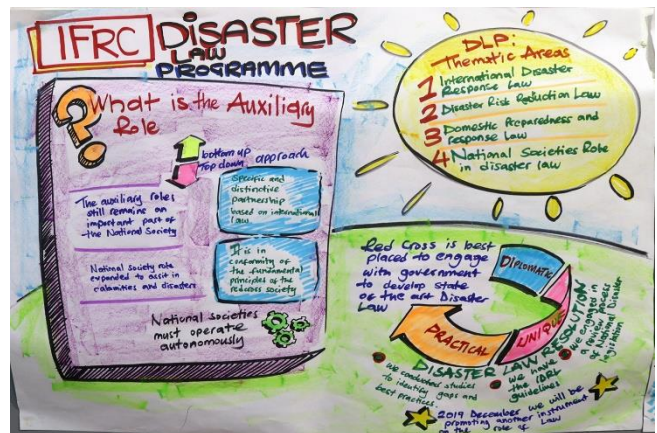 IFRC
DISASTER
LAW
PROGRAMME
?
What is the Auxiliary
Role
bottom up
top down approach
The auxiliary roles
still remain an
important part of
the National Society
Specific and
distinctive
partnership
based on international
law
National society role
expanded to assist in
calamities and disasters
It is in
conformity
of the fundamental
principles of the
redcross society
National societies
must operate
autonomously
DLP:
Thematic Areas
1 International Disaster
Response Law
2 Disaster Risk Reduction Law
3 Domestic Preparedness and
response Law
4 National Societies Role
in disaster law
Red Cross is best
placed to engage
with government
to develop state
of the art Disaster
Law
DIPLOMATIC
UNIQUE
PRACTICAL
DISASTER LAW RESOLUTION
we conducted studies
to identify gaps and
best practices.
we have
the IDRL
guidelines
we engaged in
a review process
of National Disaster
legislation
2019 December we will be
promoting another instrument
on the role of Law